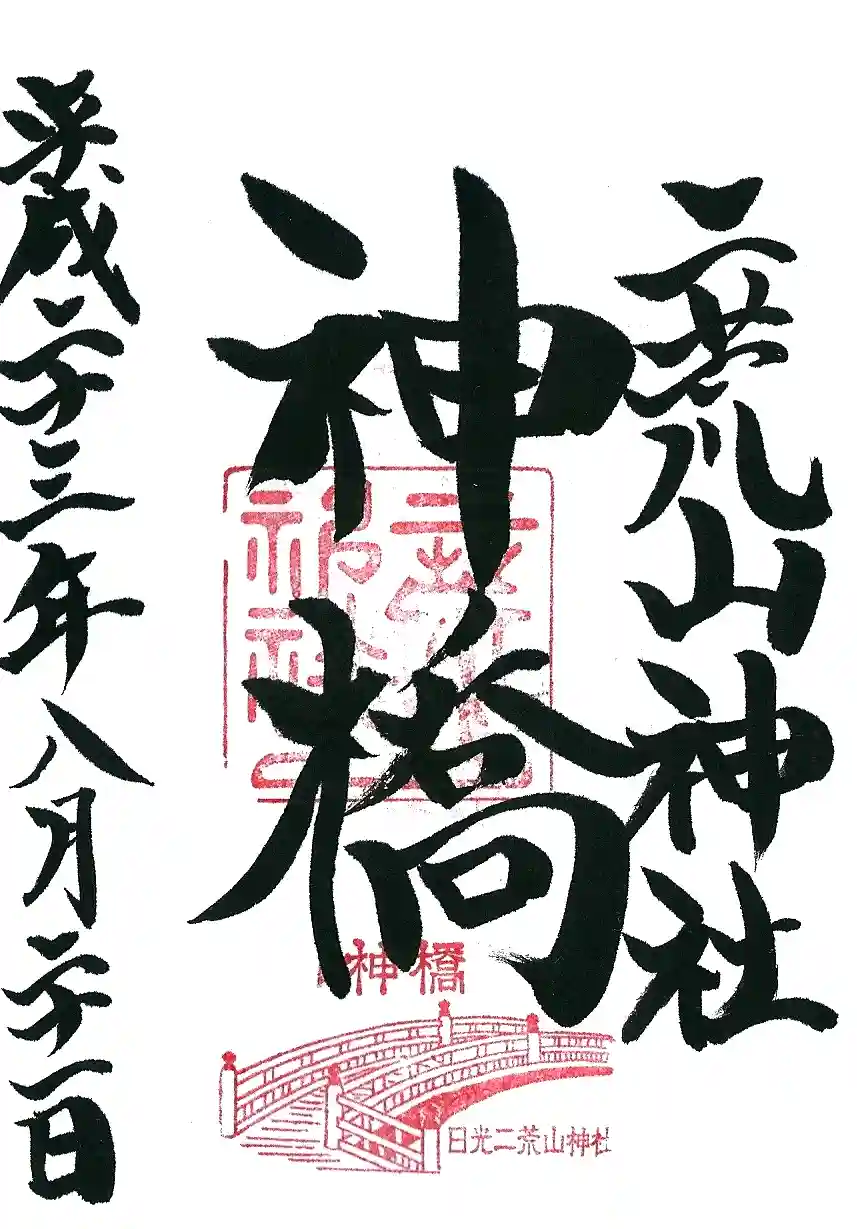 二荒山神社
神橋
平成二十三年八月二十一日
二荒山神社
神橋
日光二荒山神社